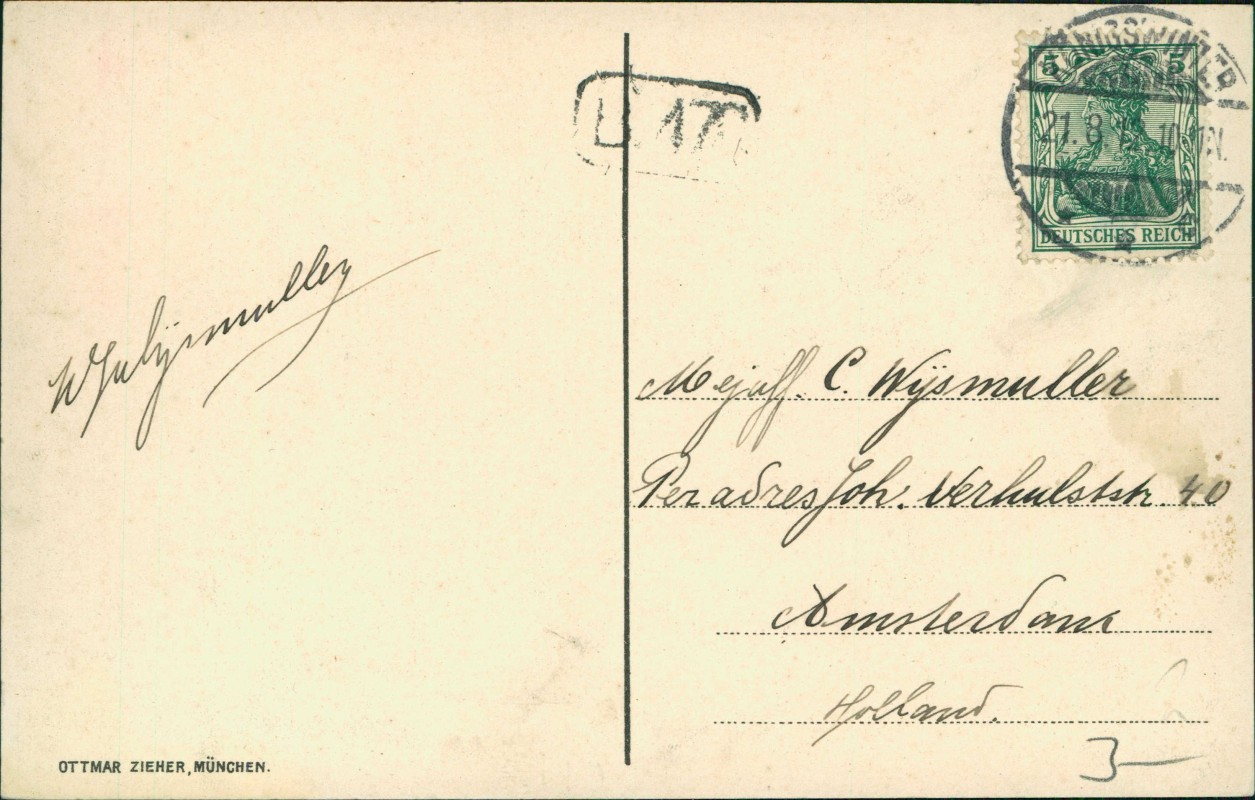 5 5
DEUTSCHES REICH
21.8
Mejuff. C. Wijsmuller
Per adres Joh. Verhulststr. 40
Amsterdam
Holland.
3-
OTTMAR ZIEHER, MÜNCHEN.